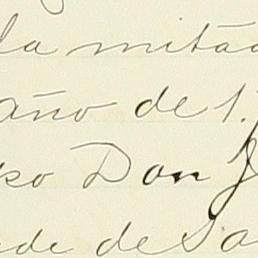 la mitad
año de 1.
Don J
de de Sa